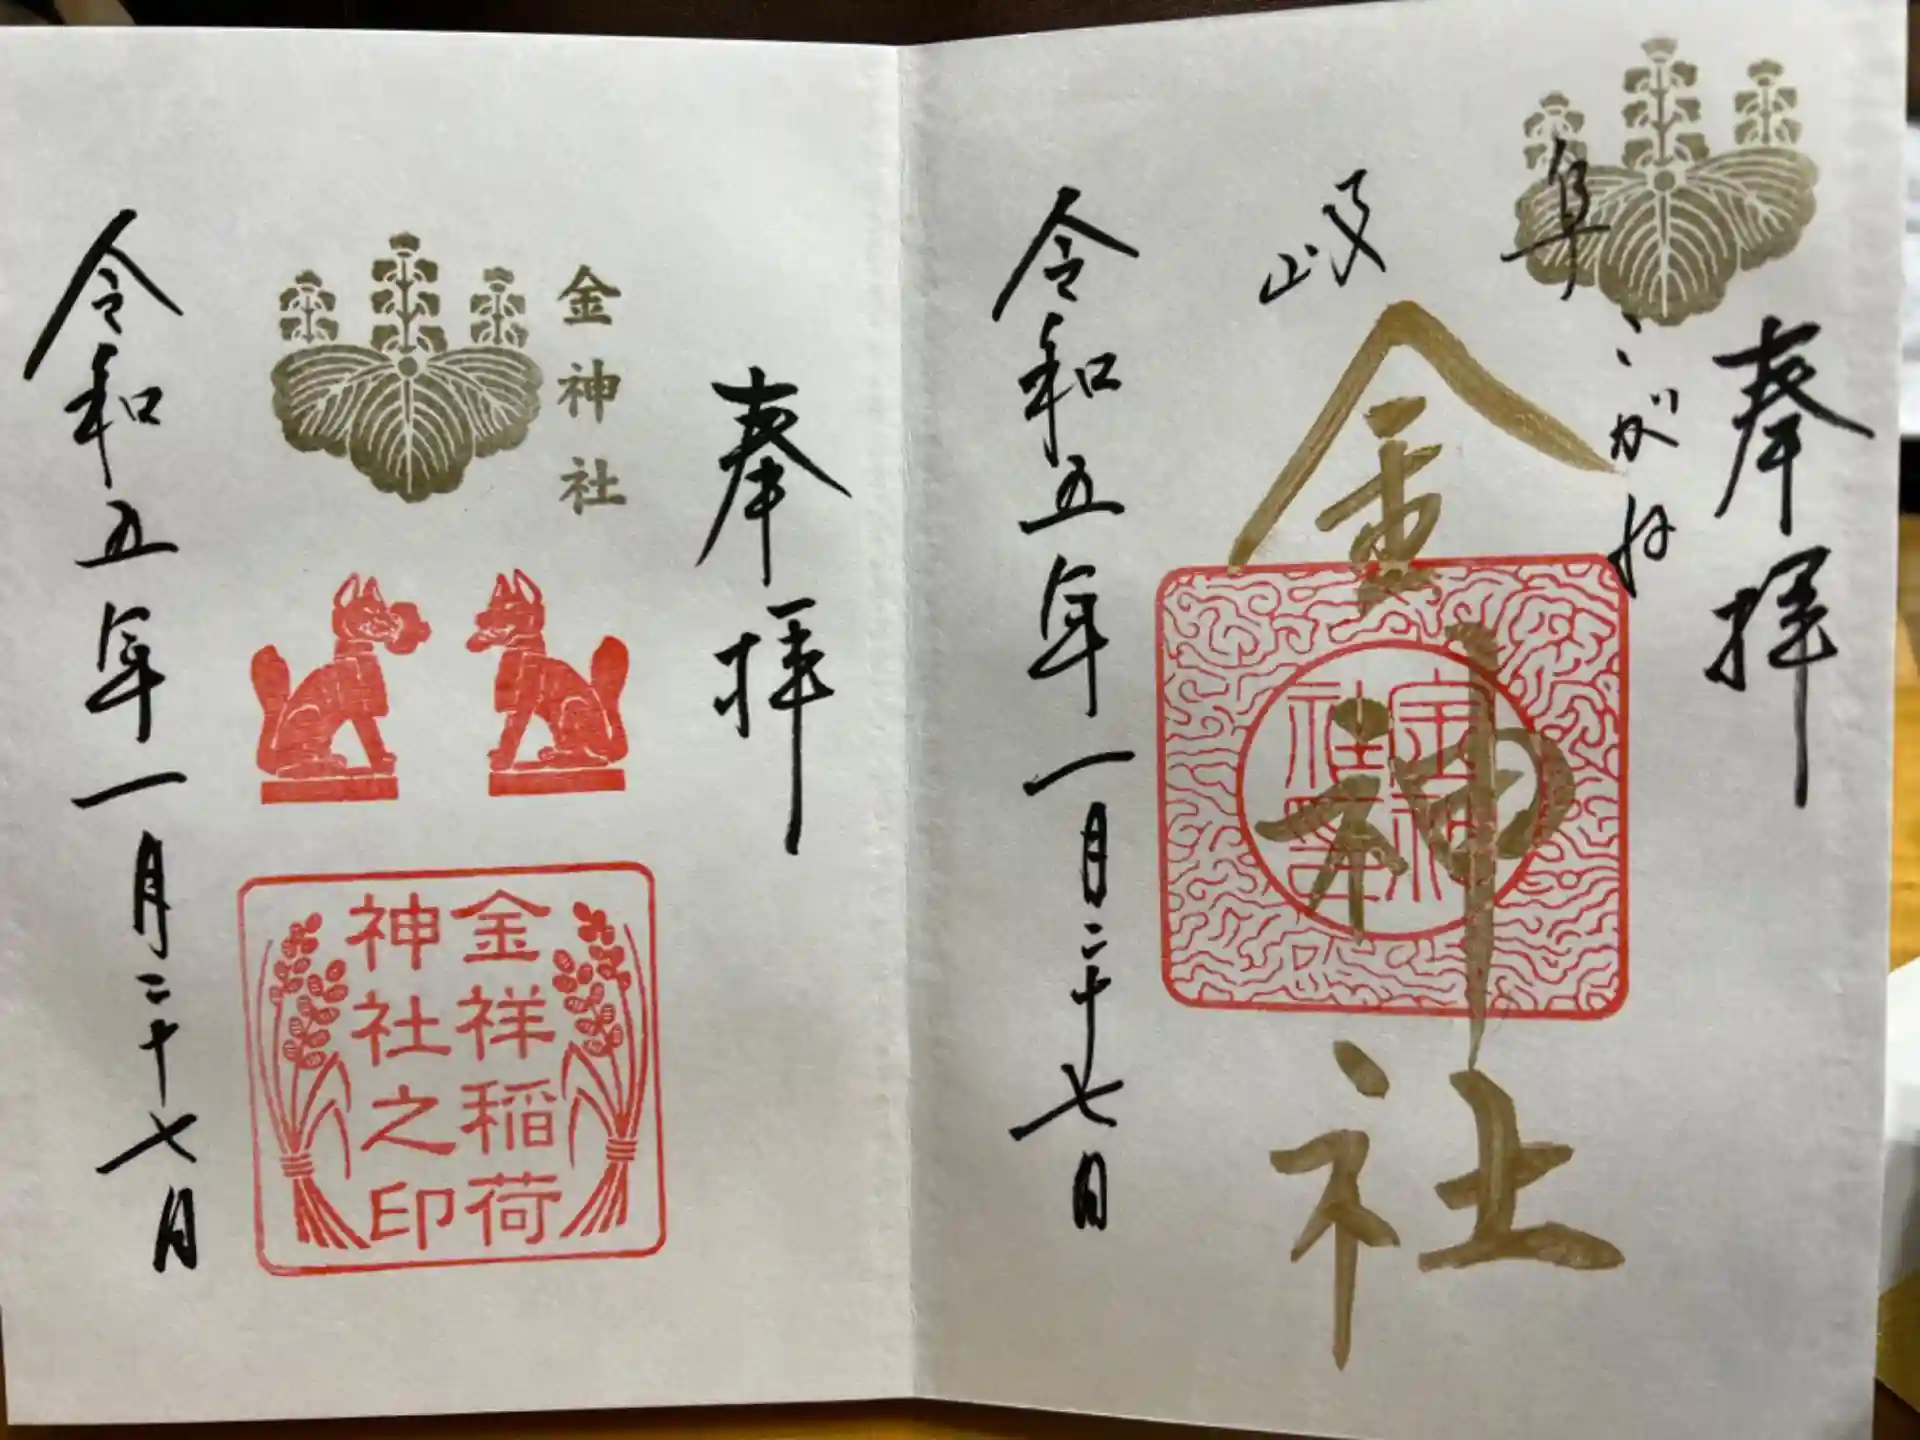 奉拝
岐阜
こがね
金神社
金神社印
令和五年一月二十七日
奉拝
金神社
金祥稲荷
神社之印
令和五年一月二十七日